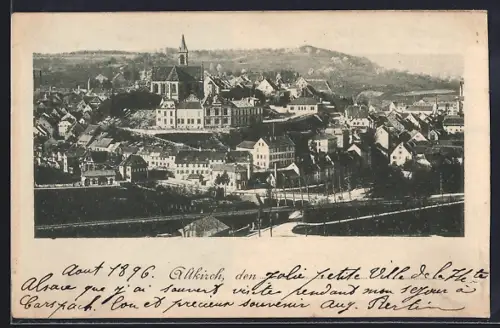 Aout 1896. Altkirch, den Jolie petite Ville de la Hte
Alsace que j'ai souvent visitée pendant mon séjour à
Carspach. Bon et precieux souvenir Aug. Berlin